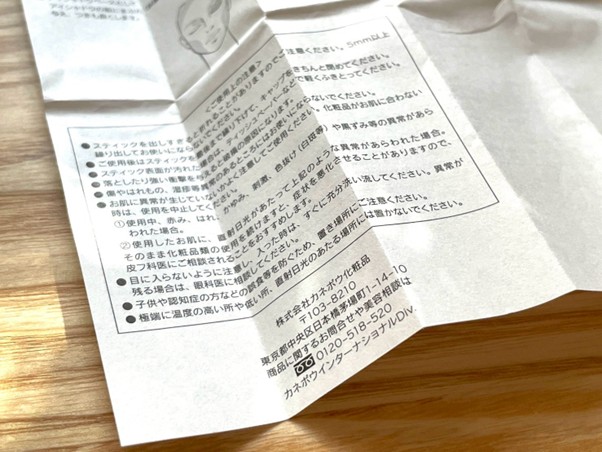 アイシャドウの際にまぶた
〈ご使用上の注意〉
●スティックを出しすぎると折れることがありますのでご注意ください。5mm以上
繰り出してお使いにならないでください。
●ご使用後はスティックを
キャップをきちんと閉めてください。
●スティック表面が汚れた
ティッシュペーパーなどで軽くふきとってください。
●落としたり強い衝撃を
●傷やはれもの、湿疹等異常のあるところにはお使いにならないでください。
●お肌に異常が生じていないかよく注意して使用してください。化粧品がお肌に合わない
時は、使用を中止してください。
①使用中、赤み、はれ、かゆみ、刺激、色抜け(白斑等)や黒ずみ等の異常があら
われた場合。
②使用したお肌に、直射日光があたって上記のような異常があらわれた場合。
そのまま化粧品類の使用を続けますと、症状を悪化させることがありますので、
皮フ科医にご相談されることをおすすめします。
●目に入らないように注意し、入った時は、すぐに充分洗い流してください。異常が
残る場合は、眼科医に相談してください。
●子供や認知症の方などの誤食等を防ぐため、置き場所にご注意ください。
●極端に温度の高い所や低い所、直射日光のあたる所には置かないでください。
株式会社カネボウ化粧品
〒103-8210
東京都中央区日本橋茅場町1-14-10
商品に関するお問合せや美容相談は
0120-518-520
カネボウインターナショナルDiv.